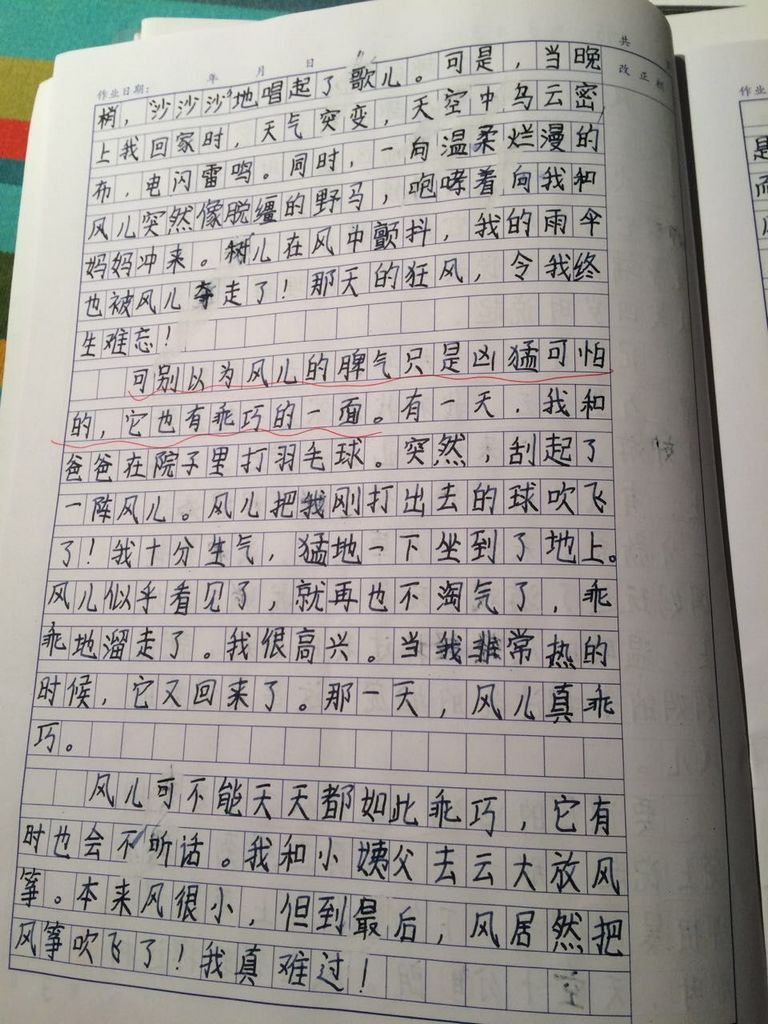 作业日期: 年 月 日
共
改正栏
作业
梢，“沙沙沙”地唱起了歌儿。可是，当晚
上我回家时，天气突变，天空中乌云密
布，电闪雷鸣。同时，一向温柔烂漫的
风儿突然像脱缰的野马，咆哮着向我和
妈妈冲来。树儿在风中颤抖，我的雨伞
也被风儿夺走了！那天的狂风，令我终
生难忘！
可别以为风儿的脾气只是凶猛可怕
的，它也有乖巧的一面。有一天，我和
爸爸在院子里打羽毛球。突然，刮起了
一阵风儿。风儿把我刚打出去的球吹飞
了！我十分生气，猛地一下坐到了地上。
风儿似乎看见了，就再也不淘气了，乖
乖地溜走了。我很高兴。当我非常热的
时候，它又回来了。那一天，风儿真乖
巧。
风儿可不能天天都如此乖巧，它有
时也会不听话。我和小姨父去云大放风
筝。本来风很小，但到最后，风居然把
风筝吹飞了！我真难过！